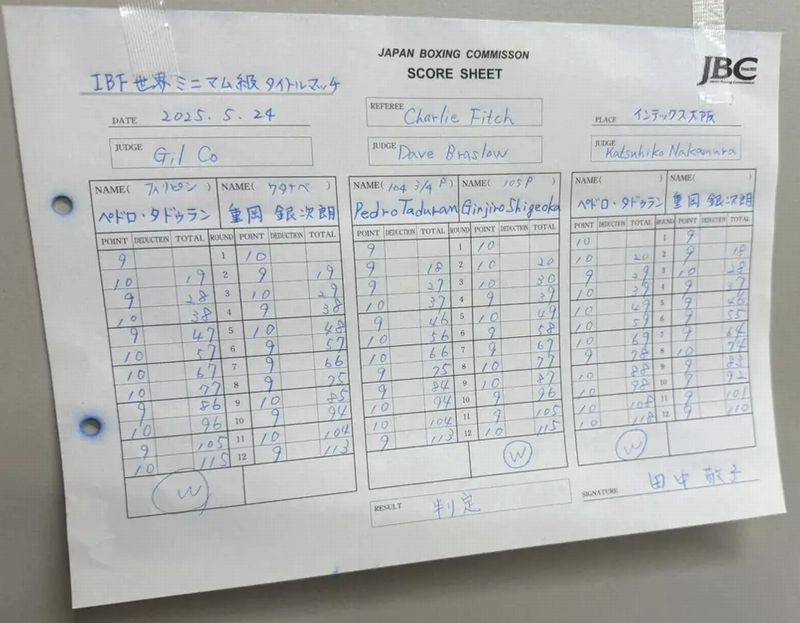 JAPAN BOXING COMMISSON
SCORE SHEET
JBC
IBF世界ミニマム級タイトルマッチ
DATE 2025.5.24
REFEREE Charlie Fitch
PLACE インテックス大阪
JUDGE Gil Co
JUDGE Dave Braslow
JUDGE Katsuhiko Nakamura
NAME( フィリピン ) NAME( ワタナベ )
ペドロ・タドゥラン 重岡 銀次朗
POINT DEDUCTION TOTAL ROUND POINT DEDUCTION TOTAL
9 1 10
10 19 2 9 19
9 28 3 10 29
10 38 4 9 38
9 47 5 10 48
10 57 6 9 57
10 67 7 9 66
10 77 8 9 75
9 86 9 10 85
10 96 10 9 94
9 105 11 10 104
10 115 12 9 113
W
NAME( 104 3/4 P ) NAME( 105P )
Pedro Taduran Ginjiro Shigeoka
POINT DEDUCTION TOTAL ROUND POINT DEDUCTION TOTAL
9 1 10
9 18 2 10 20
9 27 3 10 30
10 37 4 9 39
9 46 5 10 49
10 56 6 9 58
10 66 7 9 67
9 75 8 10 77
9 84 9 10 87
10 94 10 9 96
10 104 11 9 105
9 113 12 10 115
W
NAME( ) NAME( )
ペドロ・タドゥラン 重岡 銀次朗
POINT DEDUCTION TOTAL ROUND POINT DEDUCTION TOTAL
10 1 9
10 20 2 9 18
9 29 3 10 28
10 39 4 9 37
10 49 5 9 46
10 59 6 9 55
10 69 7 9 64
9 78 8 10 74
10 88 9 9 83
10 98 10 9 92
10 108 11 9 101
10 118 12 9 110
W
RESULT 判定
SIGNATURE 田中 敬子